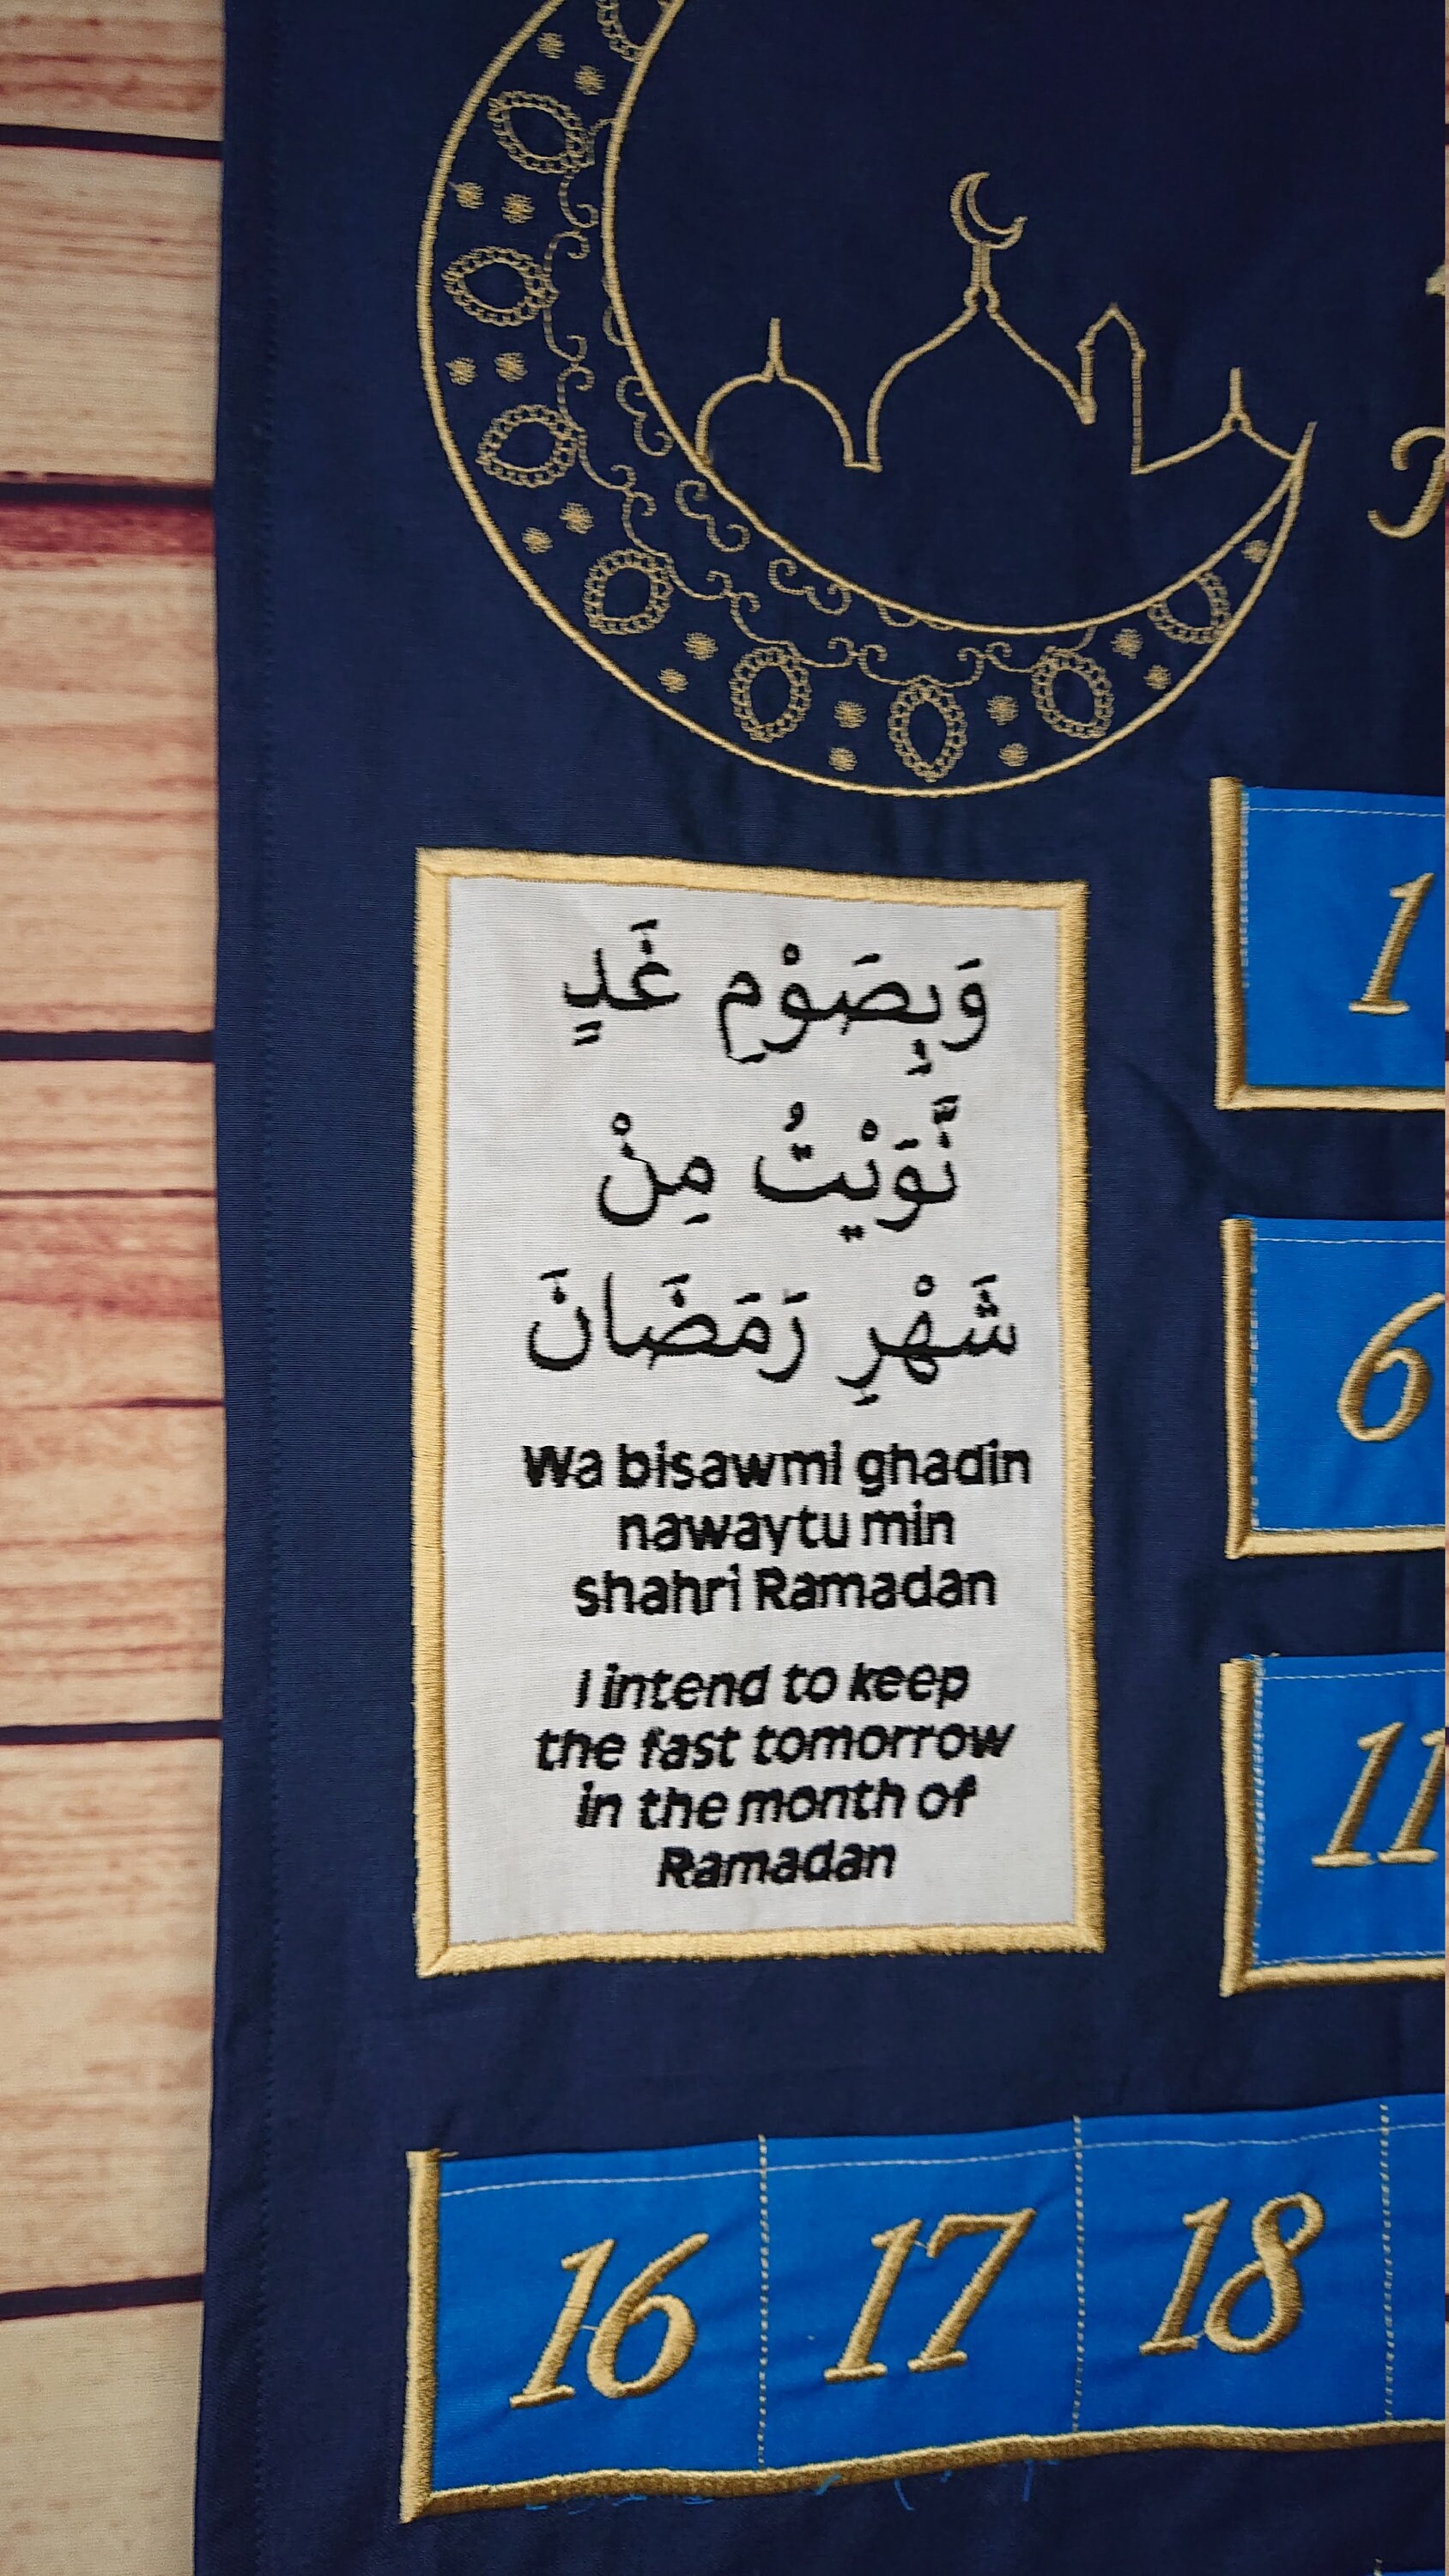 وَبِصَوْمِ غَدٍ
نَّوَيْتُ مِنْ
شَهْرِ رَمَضَانَ
Wa bisawmi ghadin
nawaytu min
shahri Ramadan
I intend to keep
the fast tomorrow
in the month of
Ramadan
1
6
11
16 17 18